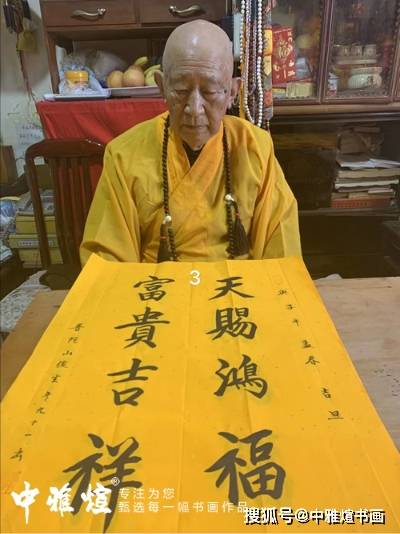 庚子年孟春 吉旦
天賜鴻福
富貴吉祥
普陀山 年九十一
3
中雅煊®
专注为您
甄选每一幅书画作品
搜狐号@中雅煊书画